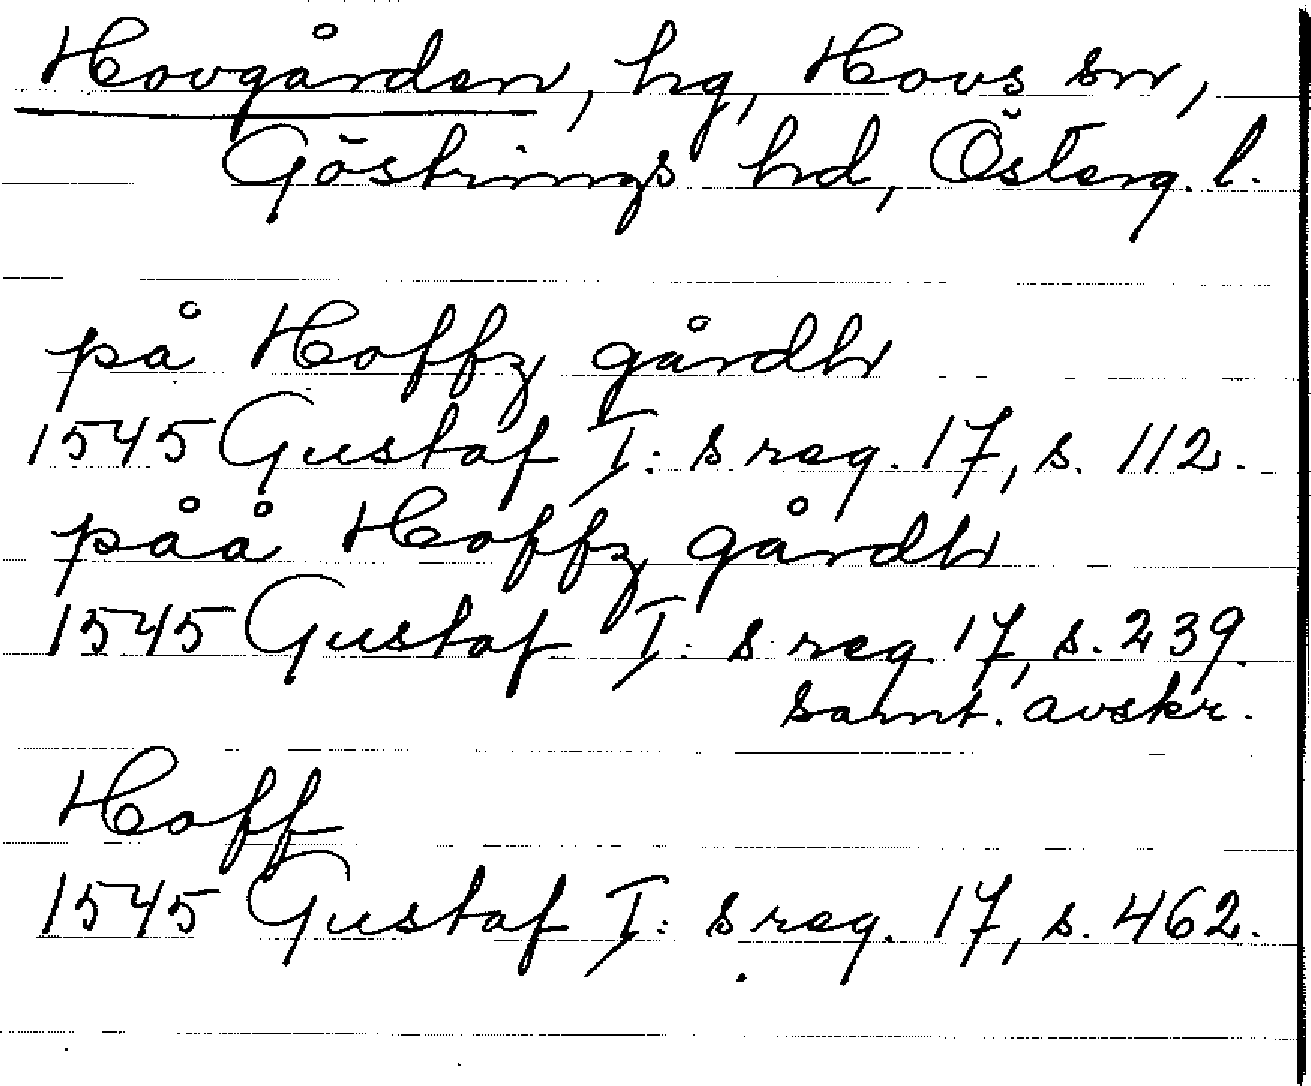 Hovgården, hg, Hovs sn,
Göstrings hd, Österg. l.
på Hoffz gårdh
1545 Gustaf I: s reg. 17, s. 112.
påå Hoffz gårdh
1545 Gustaf I: s reg. 17, s. 239.
samt. avskr.
Hoff
1545 Gustaf I: s reg. 17, s. 462.